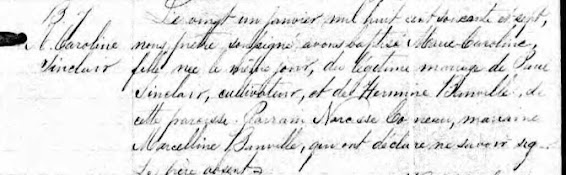 B. 7
M. Caroline
Sinclair
Le vingt un janvier mil huit cent soixante et sept,
nous prêtre soussigné avons baptisé Marie-Caroline,
fille née le même jour, du légitime mariage de Paul
Sinclair, cultivateur, et de Hermine Banville, de
cette paroisse. Parrain Narcisse marraine
Marcelline Banville, qui ont déclaré ne savoir sig-
Le père absent